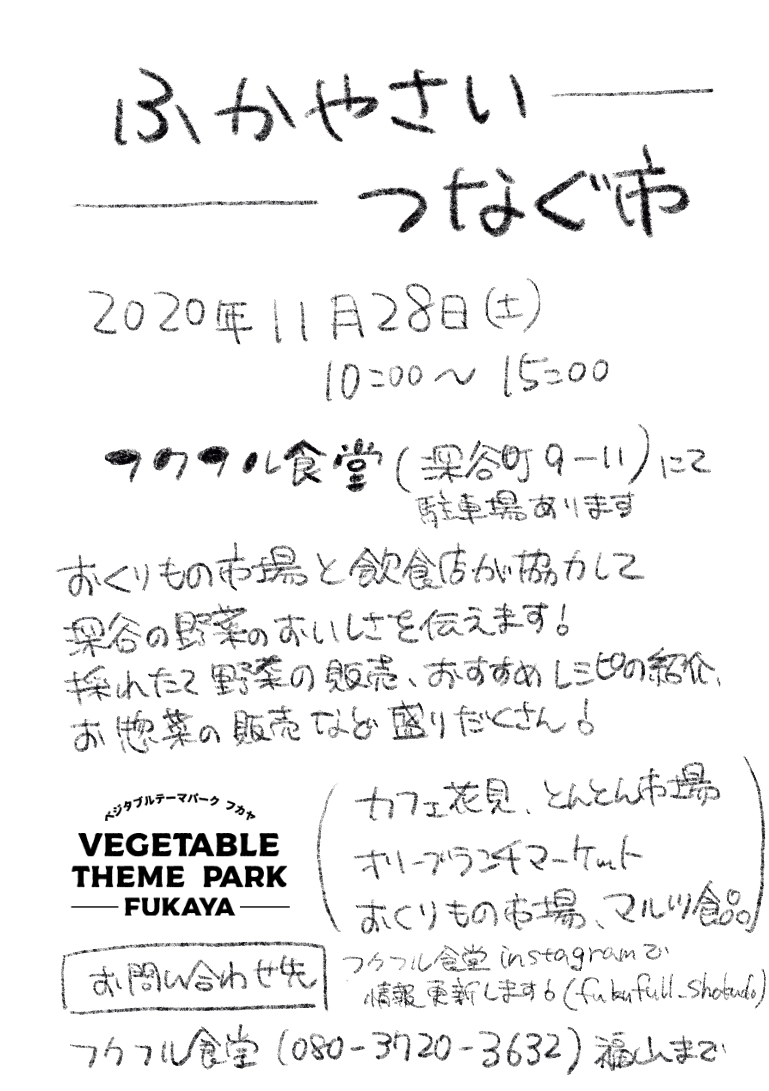 ふかやさい
つなぐ市
2020年11月28日(土)
10:00〜15:00
フクフル食堂(深谷町9-11)にて
駐車場あります
おくりもの市場と飲食店が協力して
深谷の野菜のおいしさを伝えます!
採れたて野菜の販売、おすすめレシピの紹介、
お惣菜の販売など盛りだくさん!
ベジタブルテーマパーク フカヤ
VEGETABLE
THEME PARK
FUKAYA
(カフェ花見、とんとん市場
オリーブランチマーケット
おくりもの市場、マルツ食品)
お問い合わせ先
フクフル食堂instagramで
情報更新します!(fukufull_shokudo)
フクフル食堂(080-3720-3632)福山まで